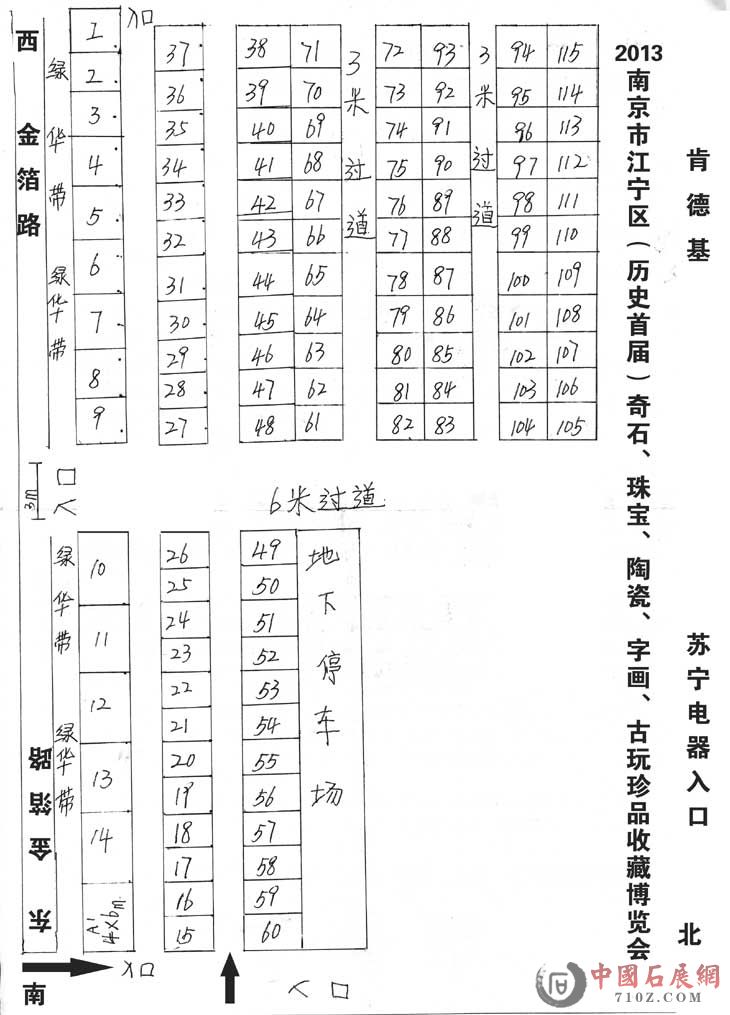 2013南京市江宁区(历史首届)奇石、珠宝、陶瓷、字画、古玩珍品收藏博览会
肯德基
苏宁电器入口
北
西
金箔路
绿华带
绿华带
入口
1 37 38 71 72 93 94 115
2 36 39 70 73 92 95 114
3 35 40 69 74 91 96 113
4 34 41 68 75 90 97 112
5 33 42 67 76 89 98 111
6 32 43 66 77 88 99 110
7 31 44 65 78 87 100 109
8 30 45 64 79 86 101 108
9 29 46 63 80 85 102 107
28 47 62 81 84 103 106
27 48 61 82 83 104 105
3米过道
3米过道
3m
入口
6米过道
绿华带
绿华带
10 26 49
11 25 50
12 24 51
13 23 52
14 22 53
21 54
20 55
19 56
18 57
17 58
16 59
15 60
A'
4×6m
地下停车场
金箔路
东
南
入口
入口
中國石展網
710Z.COM